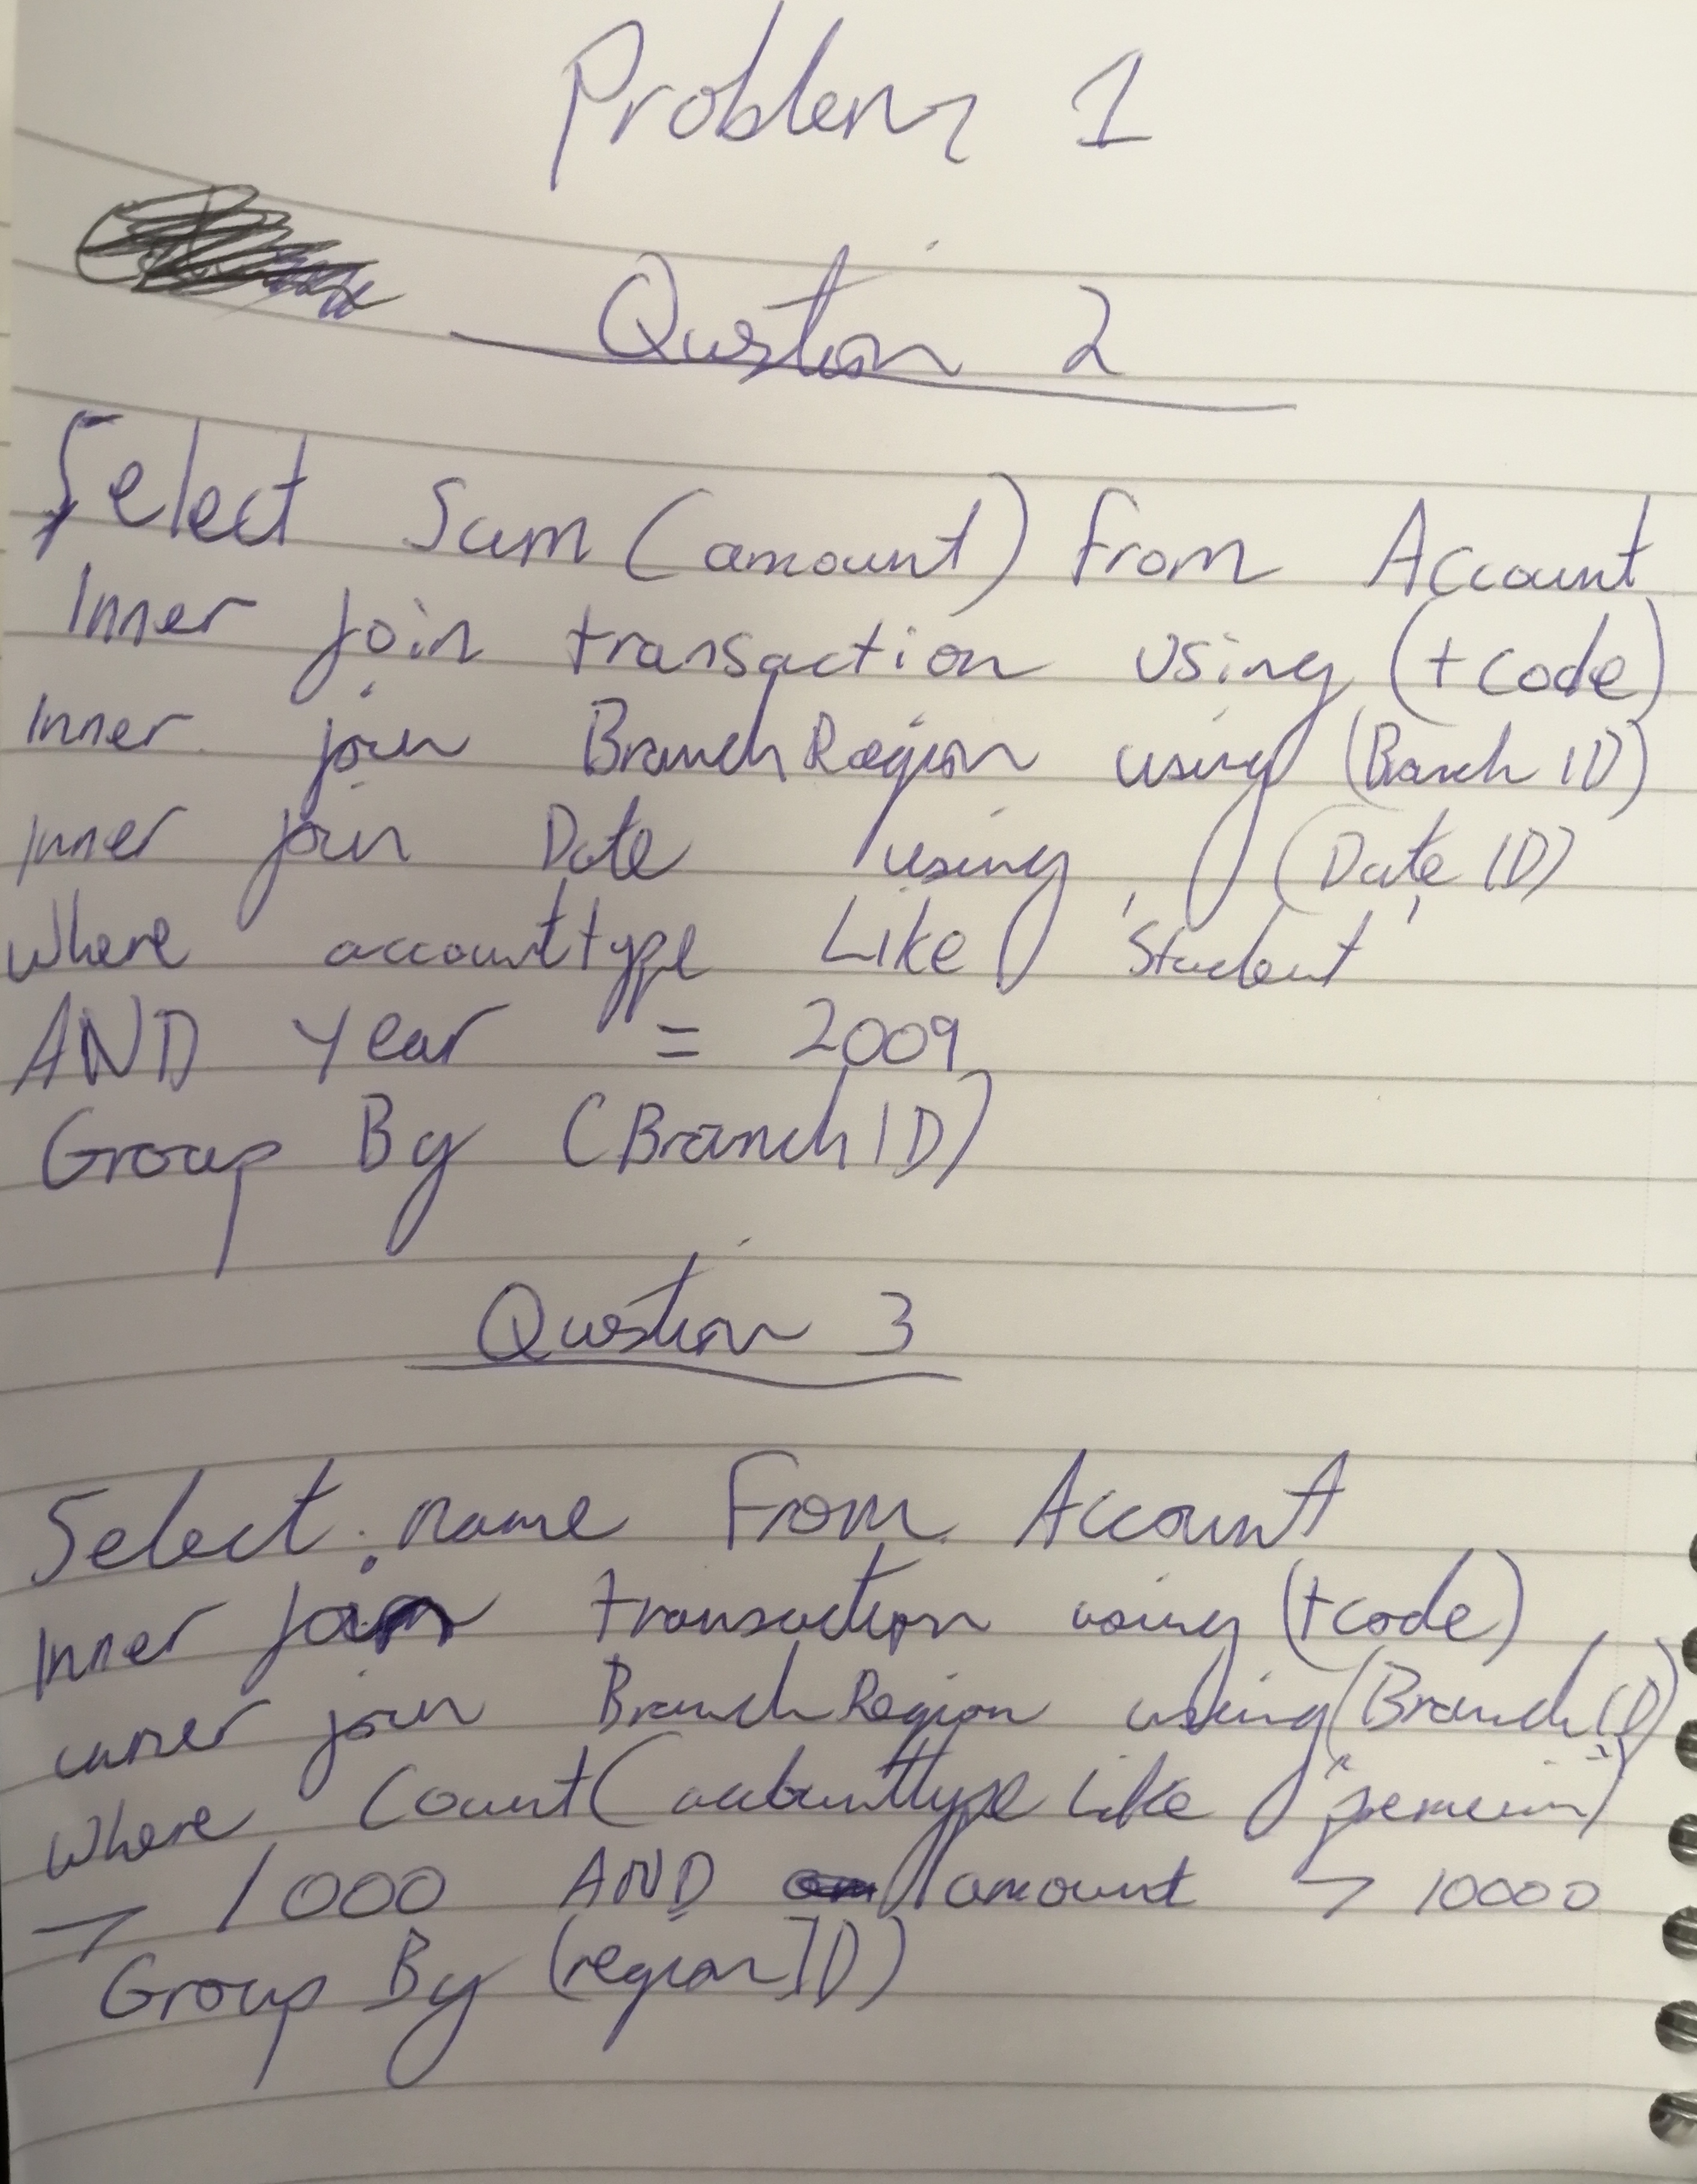 Problem 1
Question 2
Select Sum (amount) from Account
Inner join transaction using (tcode)
Inner join BranchRegion using (Branch ID)
Inner join Date using (Date ID)
Where accounttype Like 'Student'
AND Year = 2009
Group By (Branch ID)
Question 3
Select name From Account
Inner join transaction using (tcode)
inner join BranchRegion using (Branch ID)
Where Count( accounttype Like "premium")
> 1000 AND amount > 10000
Group By (region ID)